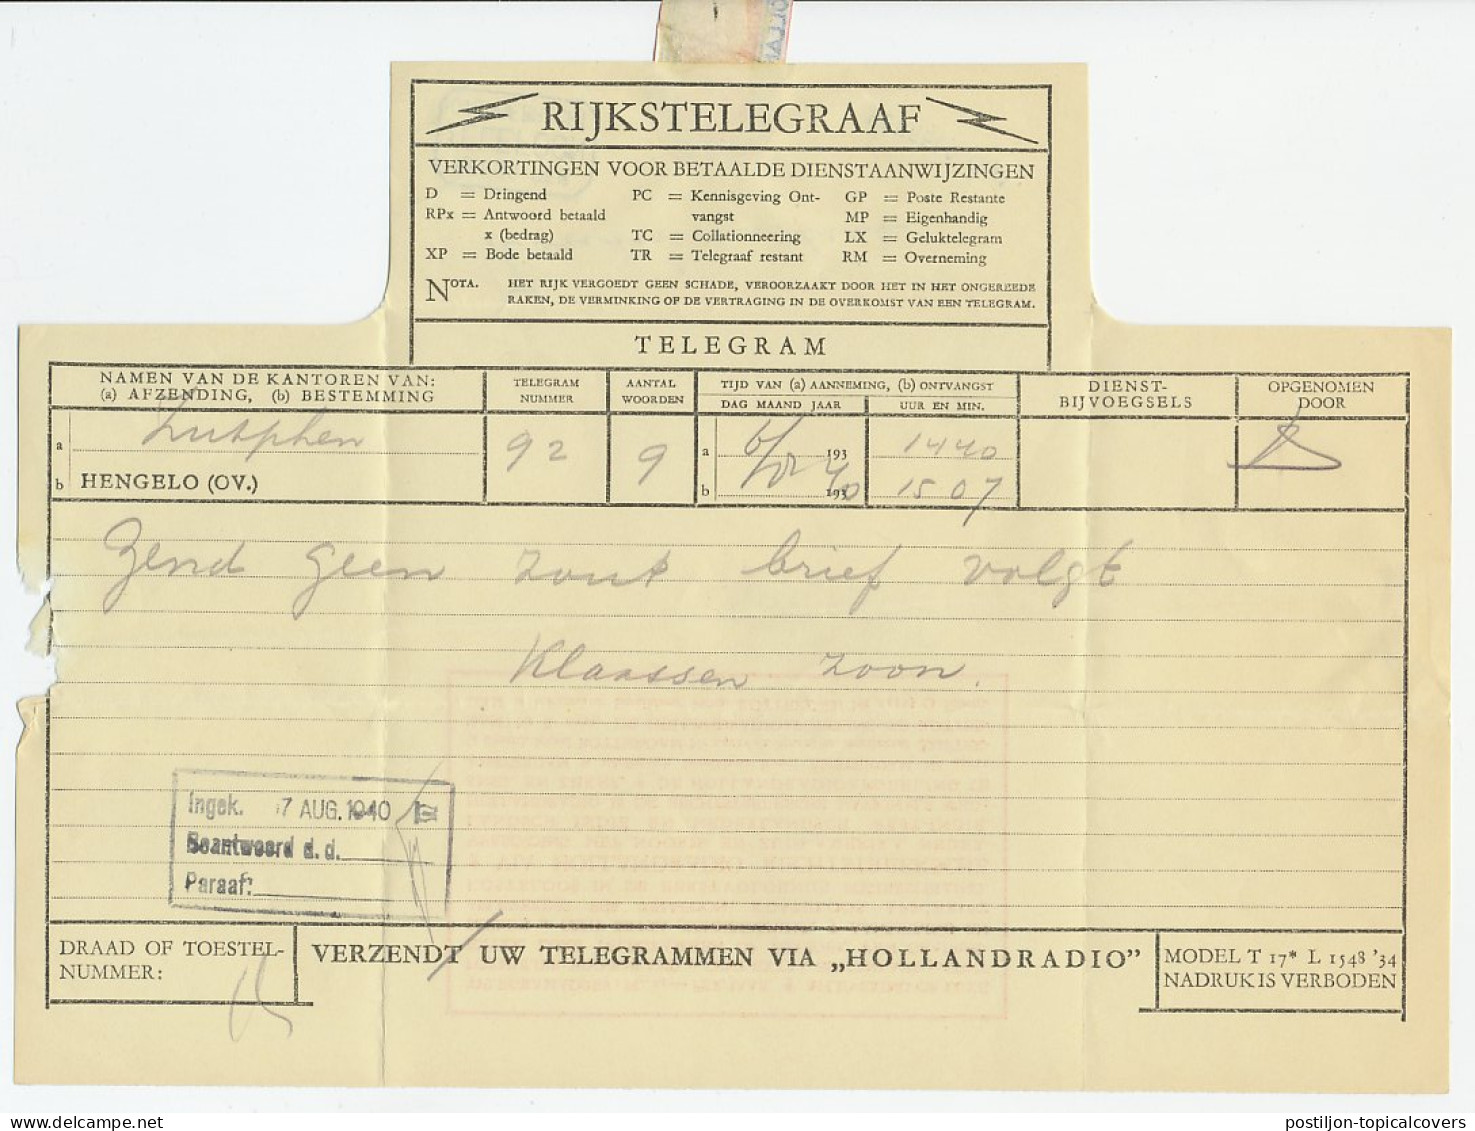 RIJKSTELEGRAAF
VERKORTINGEN VOOR BETAALDE DIENSTAANWIJZINGEN
D = Dringend
RPx = Antwoord betaald
x (bedrag)
XP = Bode betaald
PC = Kennisgeving Ont-
vangst
TC = Collationneering
TR = Telegraaf restant
GP = Poste Restante
MP = Eigenhandig
LX = Geluktelegram
RM = Overneming
NOTA. HET RIJK VERGOEDT GEEN SCHADE, VEROORZAAKT DOOR HET IN HET ONGEREEDE
RAKEN, DE VERMINKING OF DE VERTRAGING IN DE OVERKOMST VAN EEN TELEGRAM.
TELEGRAM
NAMEN VAN DE KANTOREN VAN:
(a) AFZENDING, (b) BESTEMMING
TELEGRAM
NUMMER
AANTAL
WOORDEN
TIJD VAN (a) AANNEMING, (b) ONTVANGST
DAG MAAND JAAR
UUR EN MIN.
DIENST-
BIJVOEGSELS
OPGENOMEN
DOOR
a Zutphen 92 9 a 6/ 193 1440
b HENGELO (OV.) b 40 193 1507
Zend geen zout brief volgt
Klaassen zoon.
Ingek. 7 AUG. 1940
Beantwoord d. d.
Paraaf:
DRAAD OF TOESTEL-
NUMMER:
VERZENDT UW TELEGRAMMEN VIA „HOLLANDRADIO”
MODEL T 17* L 1548 '34
NADRUK IS VERBODEN
postiljon-topicalcovers